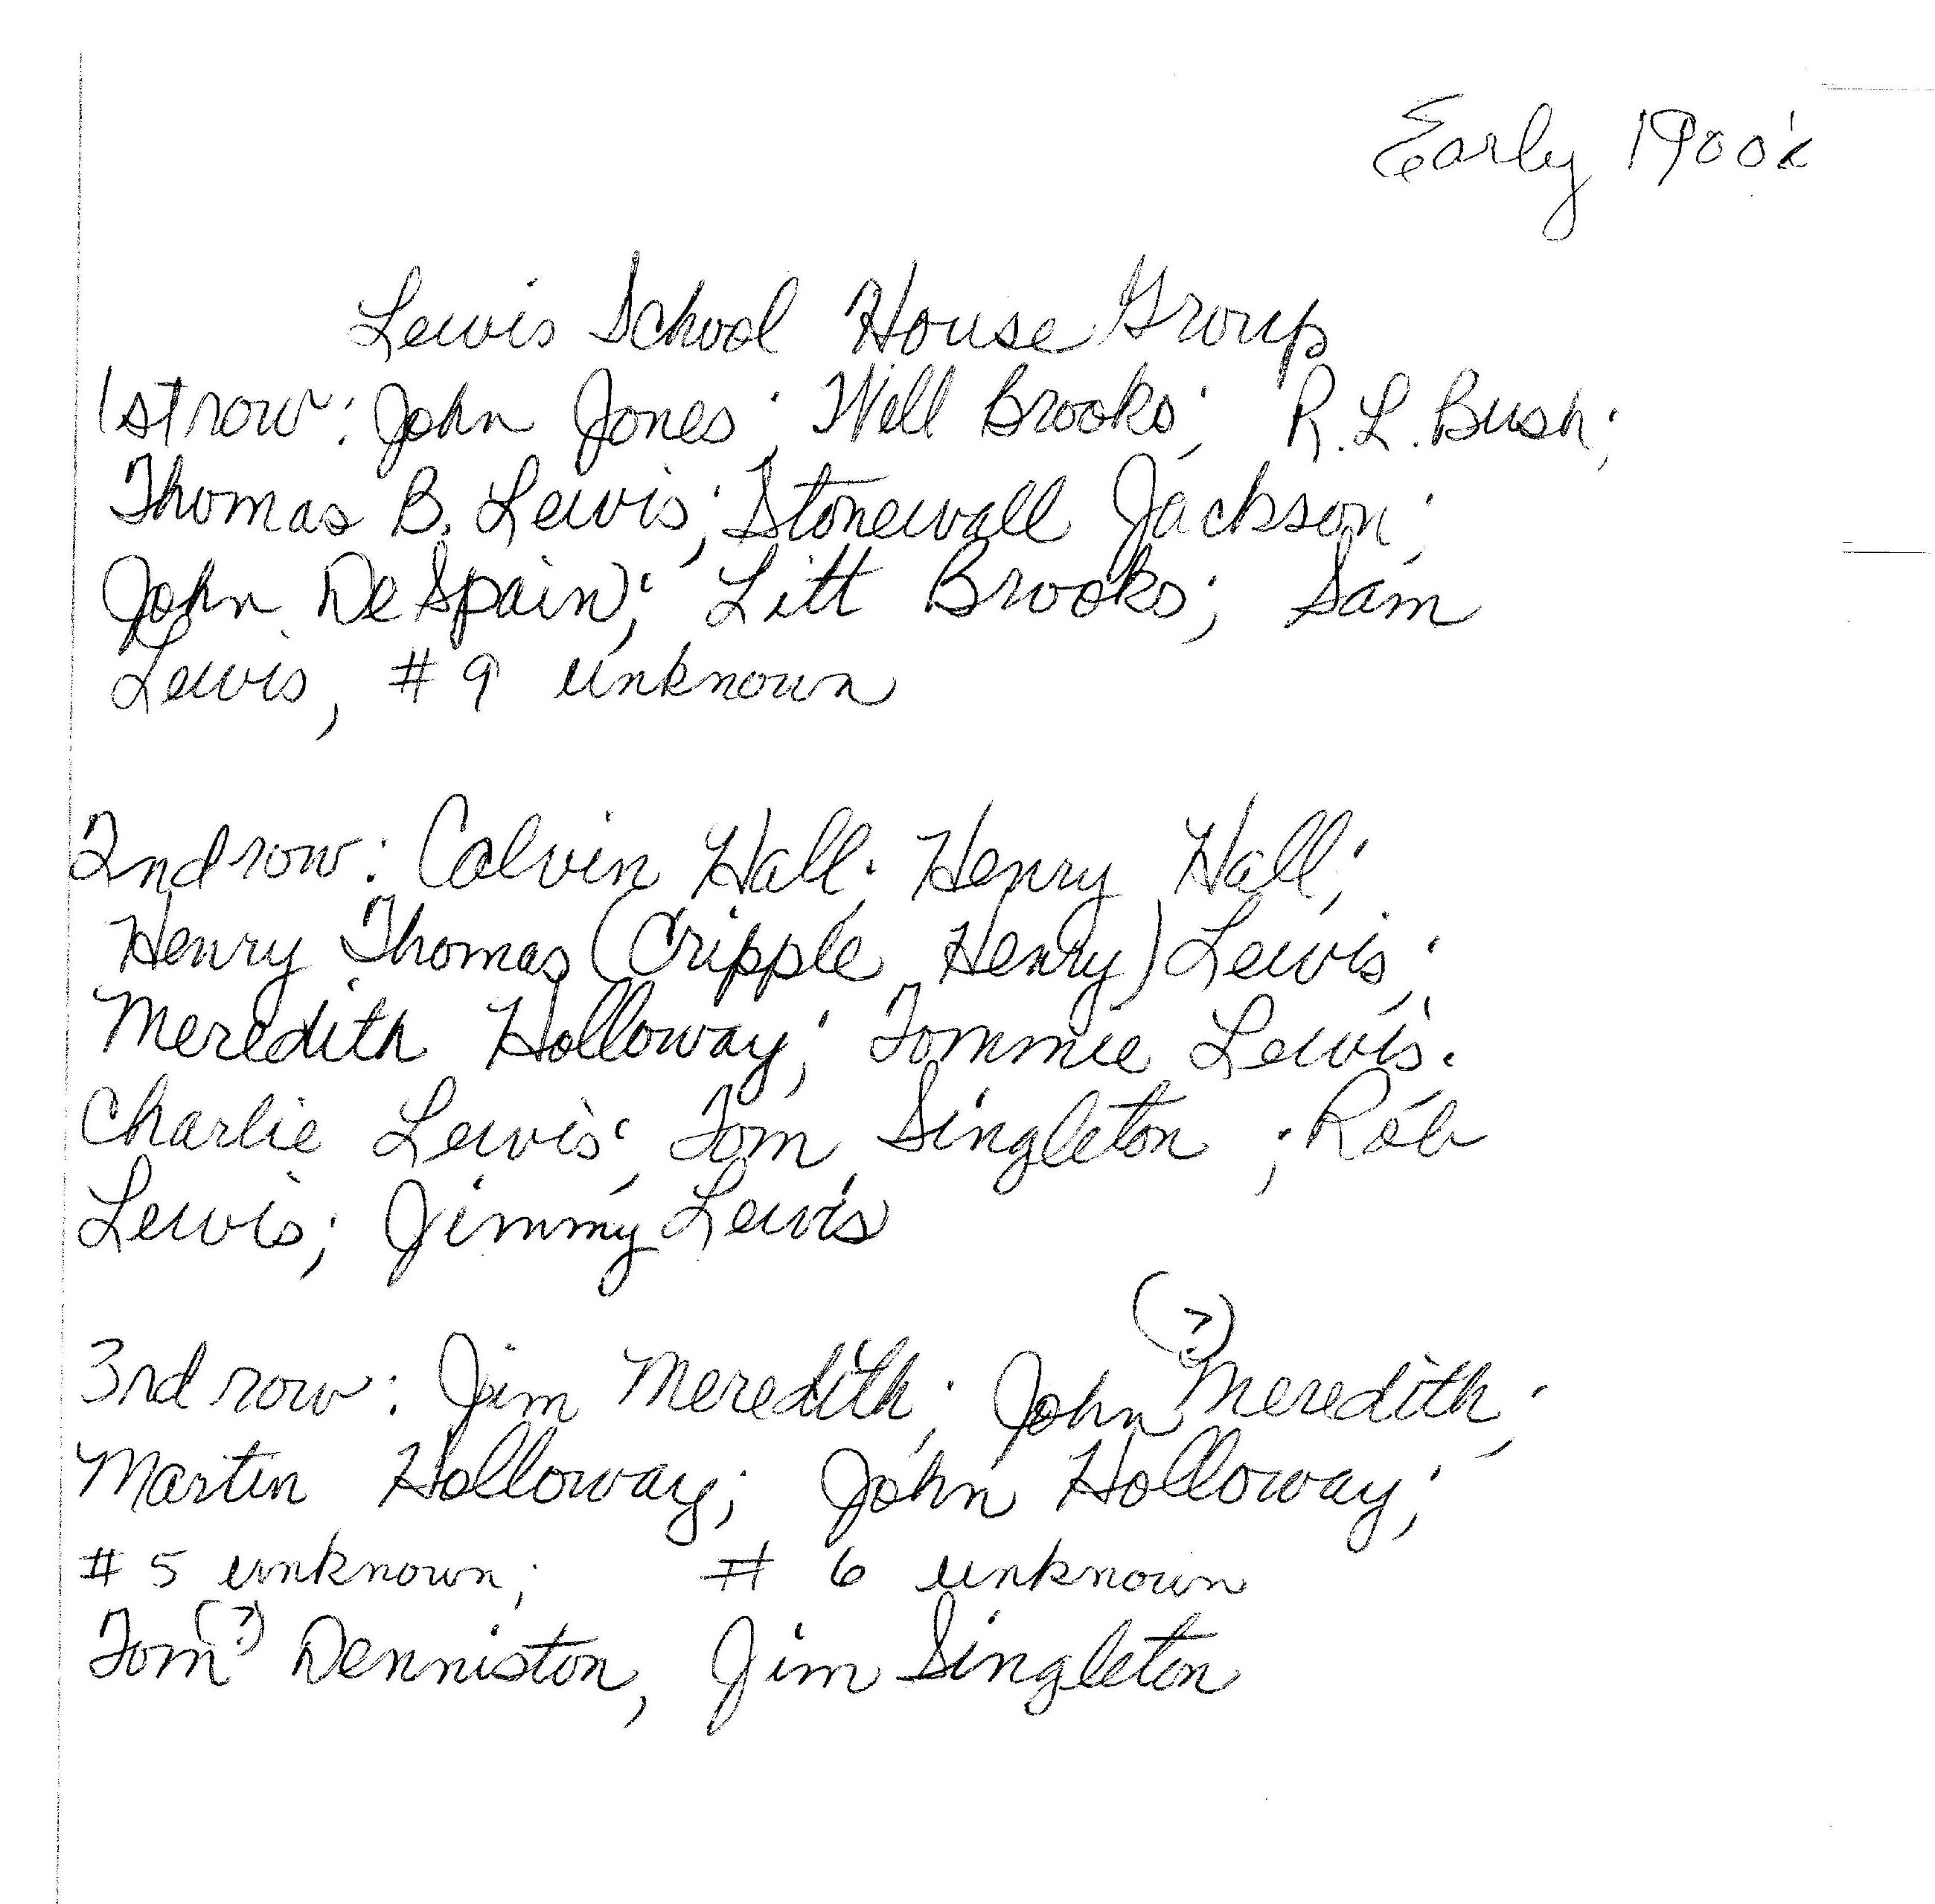 Early 1900's
Lewis School House Group
1st row: John Jones; Will Brooks; R.L. Bush;
Thomas B. Lewis; Stonewall Jackson;
John DeSpain; Litt Brooks; Sam
Lewis, #9 unknown
2nd row: Calvin Hall; Henry Hall;
Henry Thomas (Cripple Henry) Lewis;
Meredith Holloway; Tommie Lewis;
Charlie Lewis; Tom Singleton; Rob
Lewis; Jimmy Lewis
3rd row: Jim Meredith; John (?) Meredith;
Martin Holloway; John Holloway;
#5 unknown; #6 unknown
Tom (?) Denniston, Jim Singleton